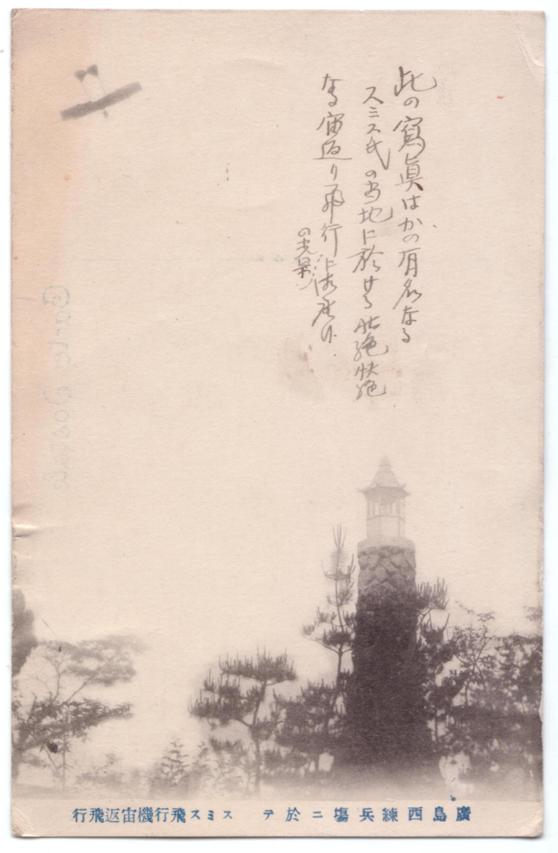 此の寫眞はかの有名なる
スミス氏の当地に於ける壮絶快絶
なる宙返り飛行
の光景
廣島西練兵塲ニ於テ スミス飛行機宙返飛行